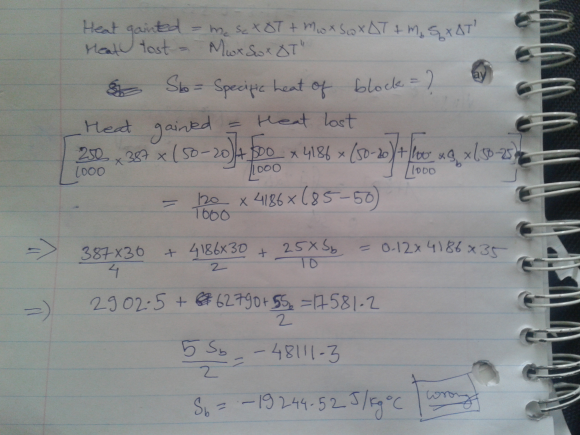 Heat gained = mc sc × ΔT + mw × sw × ΔT + mb sb × ΔT'
Heat lost = Mw × Sw × ΔT"
Sb = Specific heat of block = ?
ay
Heat gained = Heat lost
[250/1000 × 387 × (50-20)] + [500/1000 × 4186 × (50-20)] + [100/1000 × Sb × (50-25)]
= 120/1000 × 4186 × (85-50)
=> 387×30/4 + 4186×30/2 + 25×Sb/10 = 0.12 × 4186 × 35
=> 2902.5 + 62790 + 5Sb/2 = 17581.2
5 Sb/2 = -48111.3
Sb = -19244.52 J/kg°C wrong